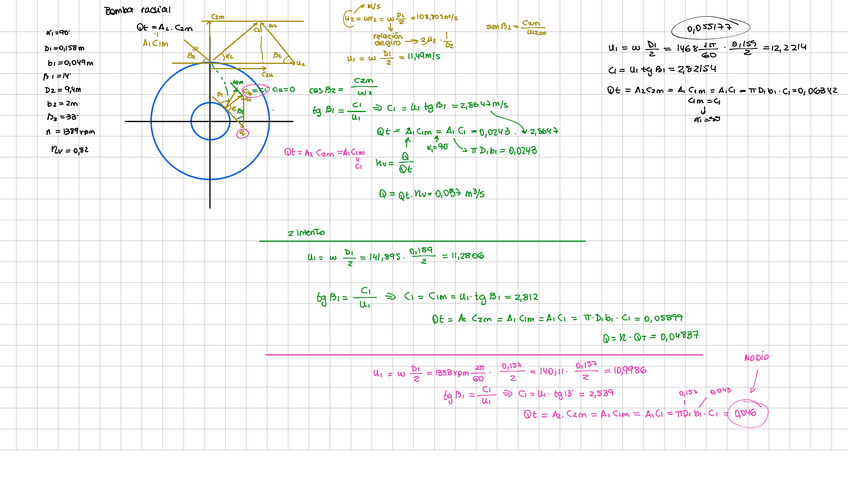 Bomba radial
Qt = A2. C2m
A1 C1m
α1=90°
D1=0,158m
b1=0,049m
β1=14°
b2=2m
n=1389rpm
ηv=0,82
C2m
C2u
u2
C1u=0
m/s
u2 = wr2 = w D1/2
relación de giro → 2,u2 . 1/D2
u1 = w D1/2 = 11,49 m/s
senβ2 = C2m/w200
cosβ2 = C2m/w2
tgβ1 = C1/u1 ⇒ C1 = u1 tgβ1 = 2,8647 m/s
Qt = A1 C1m = A1 C1 = 0,0243 . 2,8647
α1=90°
π D1 b1 = 0,0243
Qt = A2 C2m = A1 C1m
C1
ηv = Q/Qt
Q = Qt. ηv = 0,057 m³/s
0,055177
u1 = w D1/2 = 1468 2π/60 . 0,159/2 = 12,2214
C1 = u1 tgβ1 = 2,82154
Qt = A2 C2m = A1 C1m = A1 C1 = π D1 b1 . C1 = 0,06842
C1m = C1
2 intento
u1 = w D1/2 = 141,895 . 0,159/2 = 11,2806
tgβ1 = C1/u1 ⇒ C1 = C1m = u1. tgβ1 = 2,812
Qt = A2 C2m = A1 C1m = A1 C1 = π. D1 b1 . C1 = 0,05899
Q = η. QT = 0,04837
u1 = w D1/2 = 1338rpm 2π/60 . 0,157/2 = 140,11 . 0,157/2 = 10,9986
tgβ1 = C1/u1 ⇒ C1 = u1. tg13° = 2,539
0,157 0,043
Qt = A2. C2m = A1 C1m = A1 C1 = π D1 b1 . C1 = 0,046